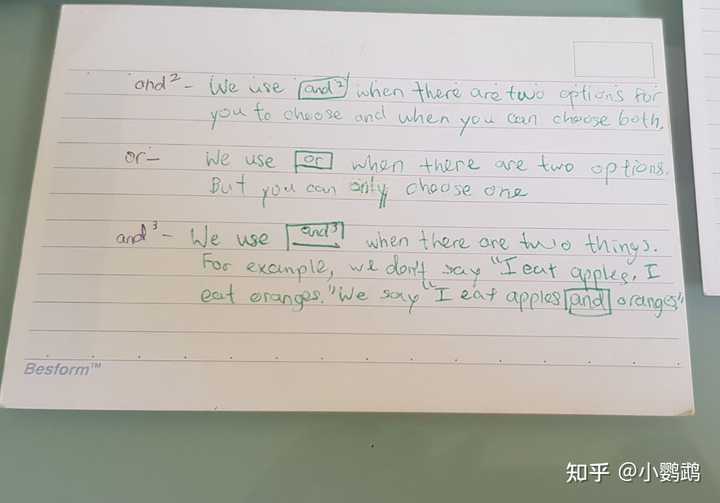 and² - We use and² when there are two options for
you to choose and when you can choose both.
or - We use or when there are two options.
But you can only choose one
and³ - We use and³ when there are two things.
For example, we don't say "I eat apples, I
eat oranges." We say "I eat apples and oranges"
Besform™
知乎 @小鹦鹉